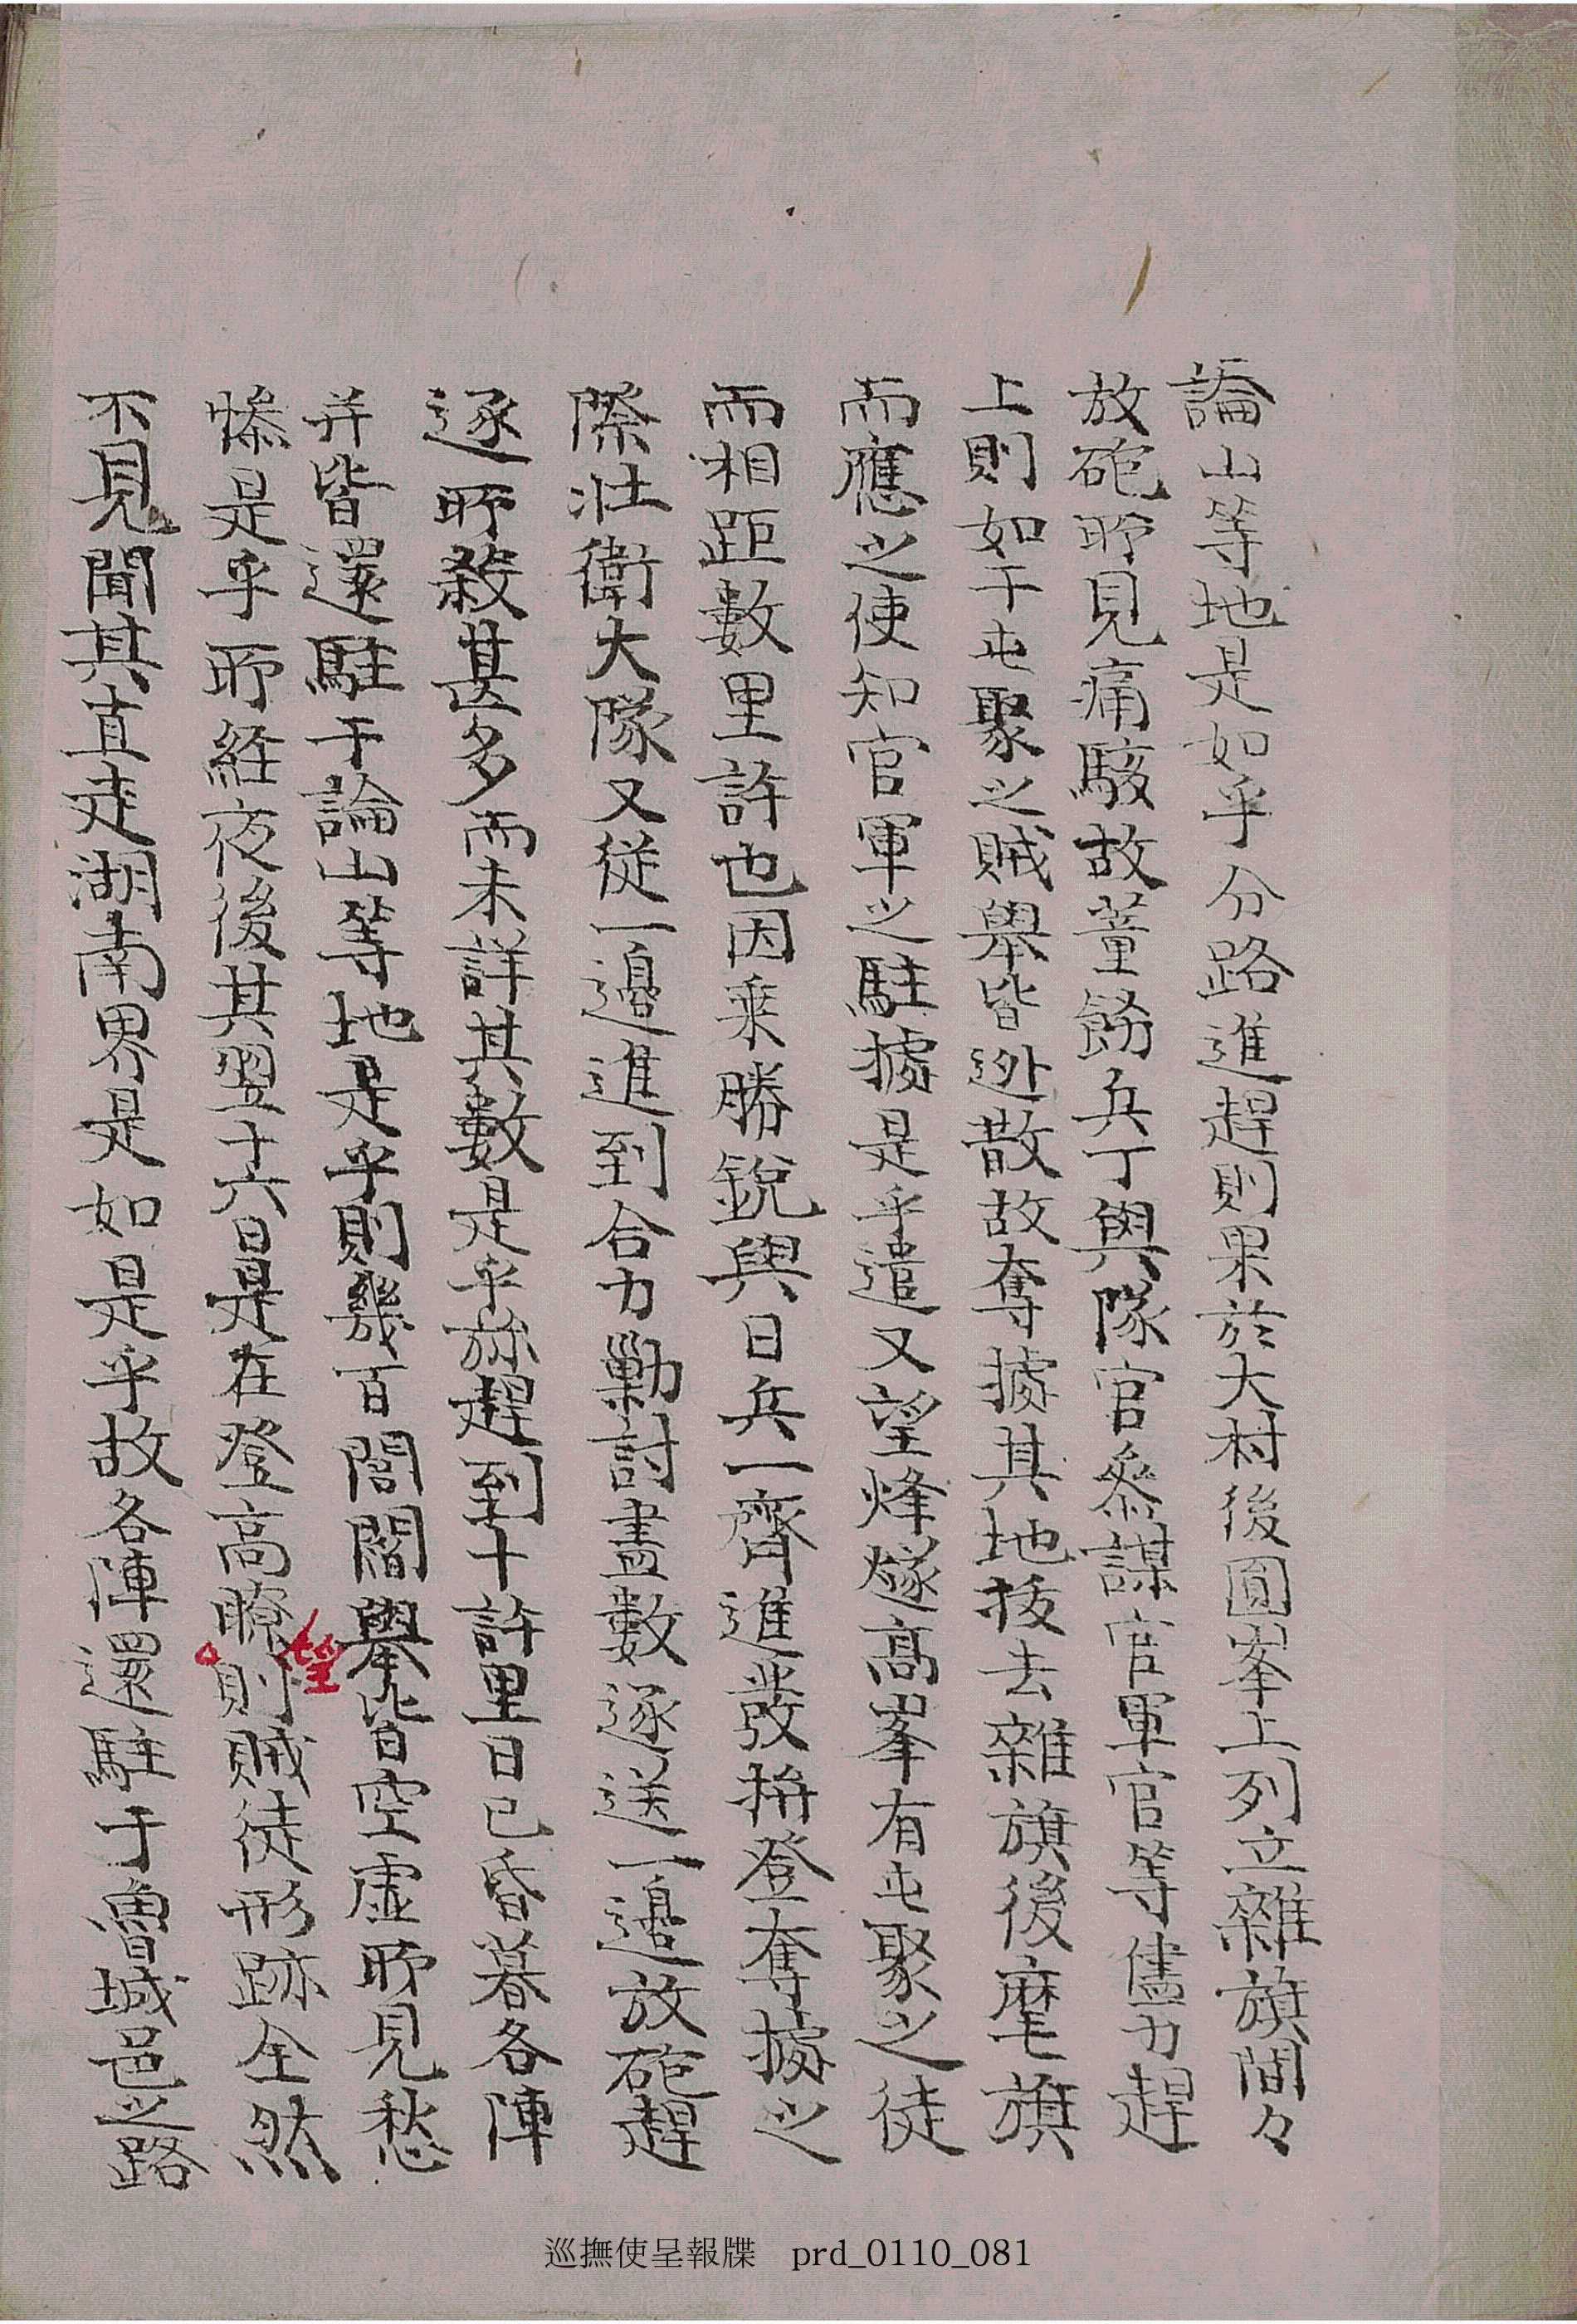 論山等地是如乎分路進趕則果於大村後圓峯上列立雜旗間々
放砲所見痛駭故董飭兵丁與隊官叅謀官軍官等儘力趕
上則如干屯聚之賊擧皆迯散故奪據其地拔去雜旗後麾旗
而應之使知官軍之駐據是乎遣又望烽燧高峯有屯聚之徒
而相距數里許也因乘勝銳與日兵一齊進發拚登奪據之
際壯衛大隊又從一邉進到合力勦討盡數逐送一邉放砲趕
逐所殺甚多而未詳其數是乎旀趕到十許里日已昏暮各陣
并皆還駐于論山等地是乎則幾百閭閻擧皆空虛所見愁
慘是乎所經夜後其翌十六日是在登高瞭望則賊徒形跡全然
不見聞其直走湖南界是如是乎故各陣還駐于魯城邑之路
巡撫使呈報牒 prd_0110_081